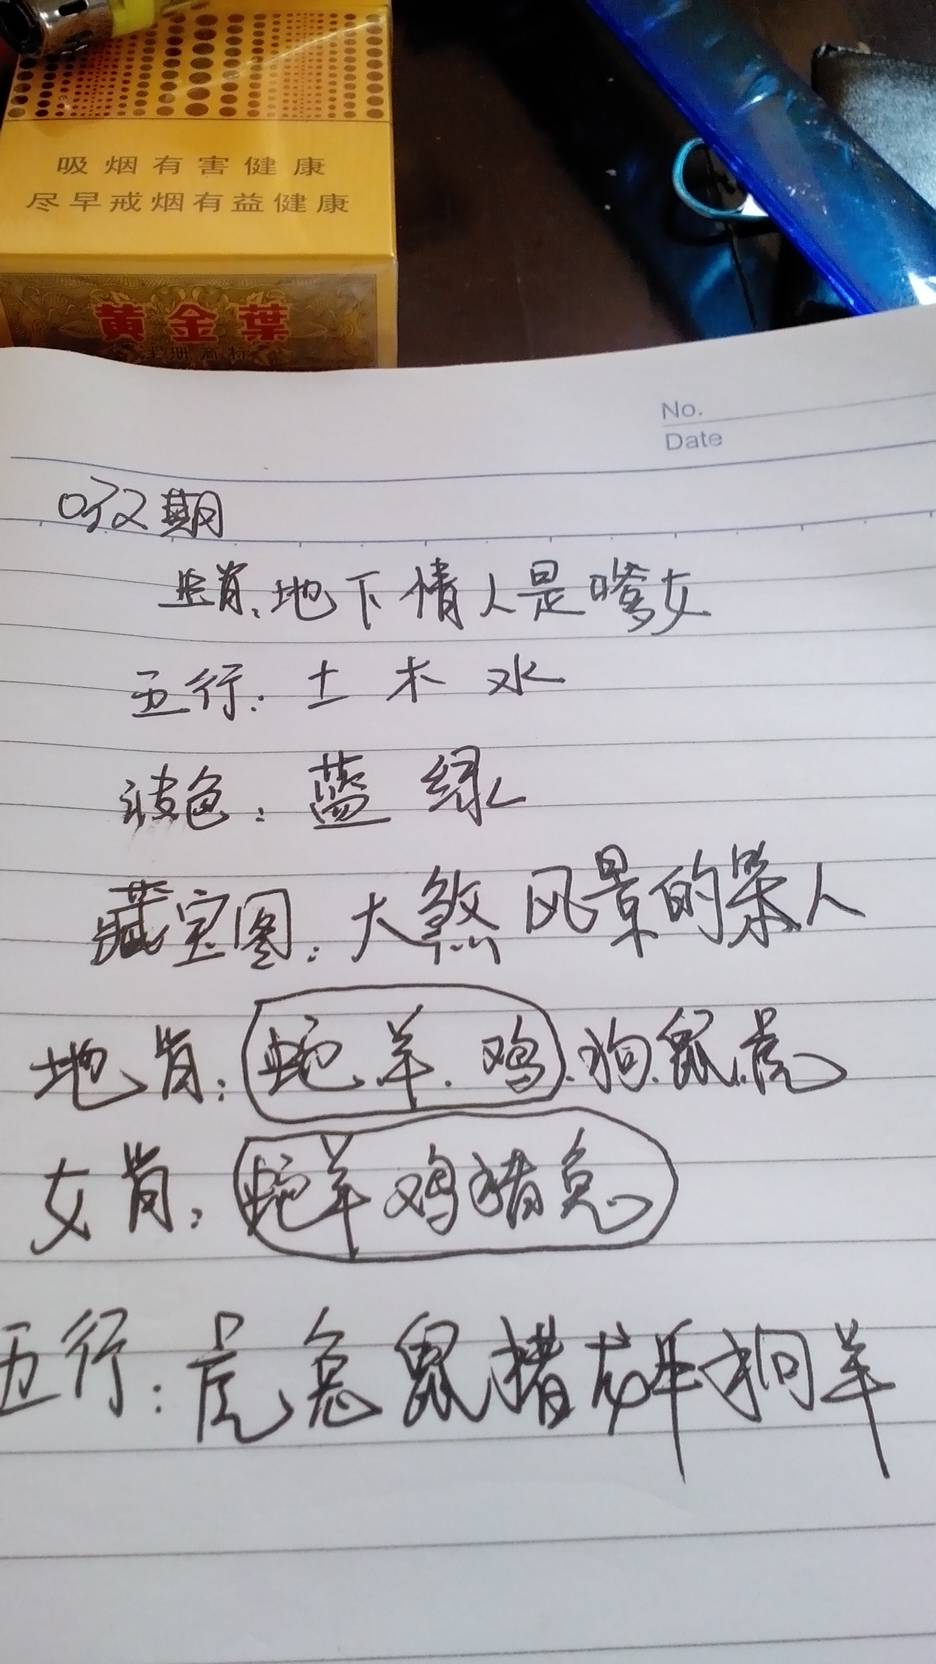 吸烟有害健康
尽早戒烟有益健康
黄金葉
No.
Date
032期
生肖:地下情人是嗲女
五行:土 木 水
波色:蓝 绿
藏宝图:大煞风景的杀人
地肖:蛇羊.鸡.狗.鼠.虎
女肖:蛇羊鸡猪兔
五行:虎兔鼠猪龙牛狗羊